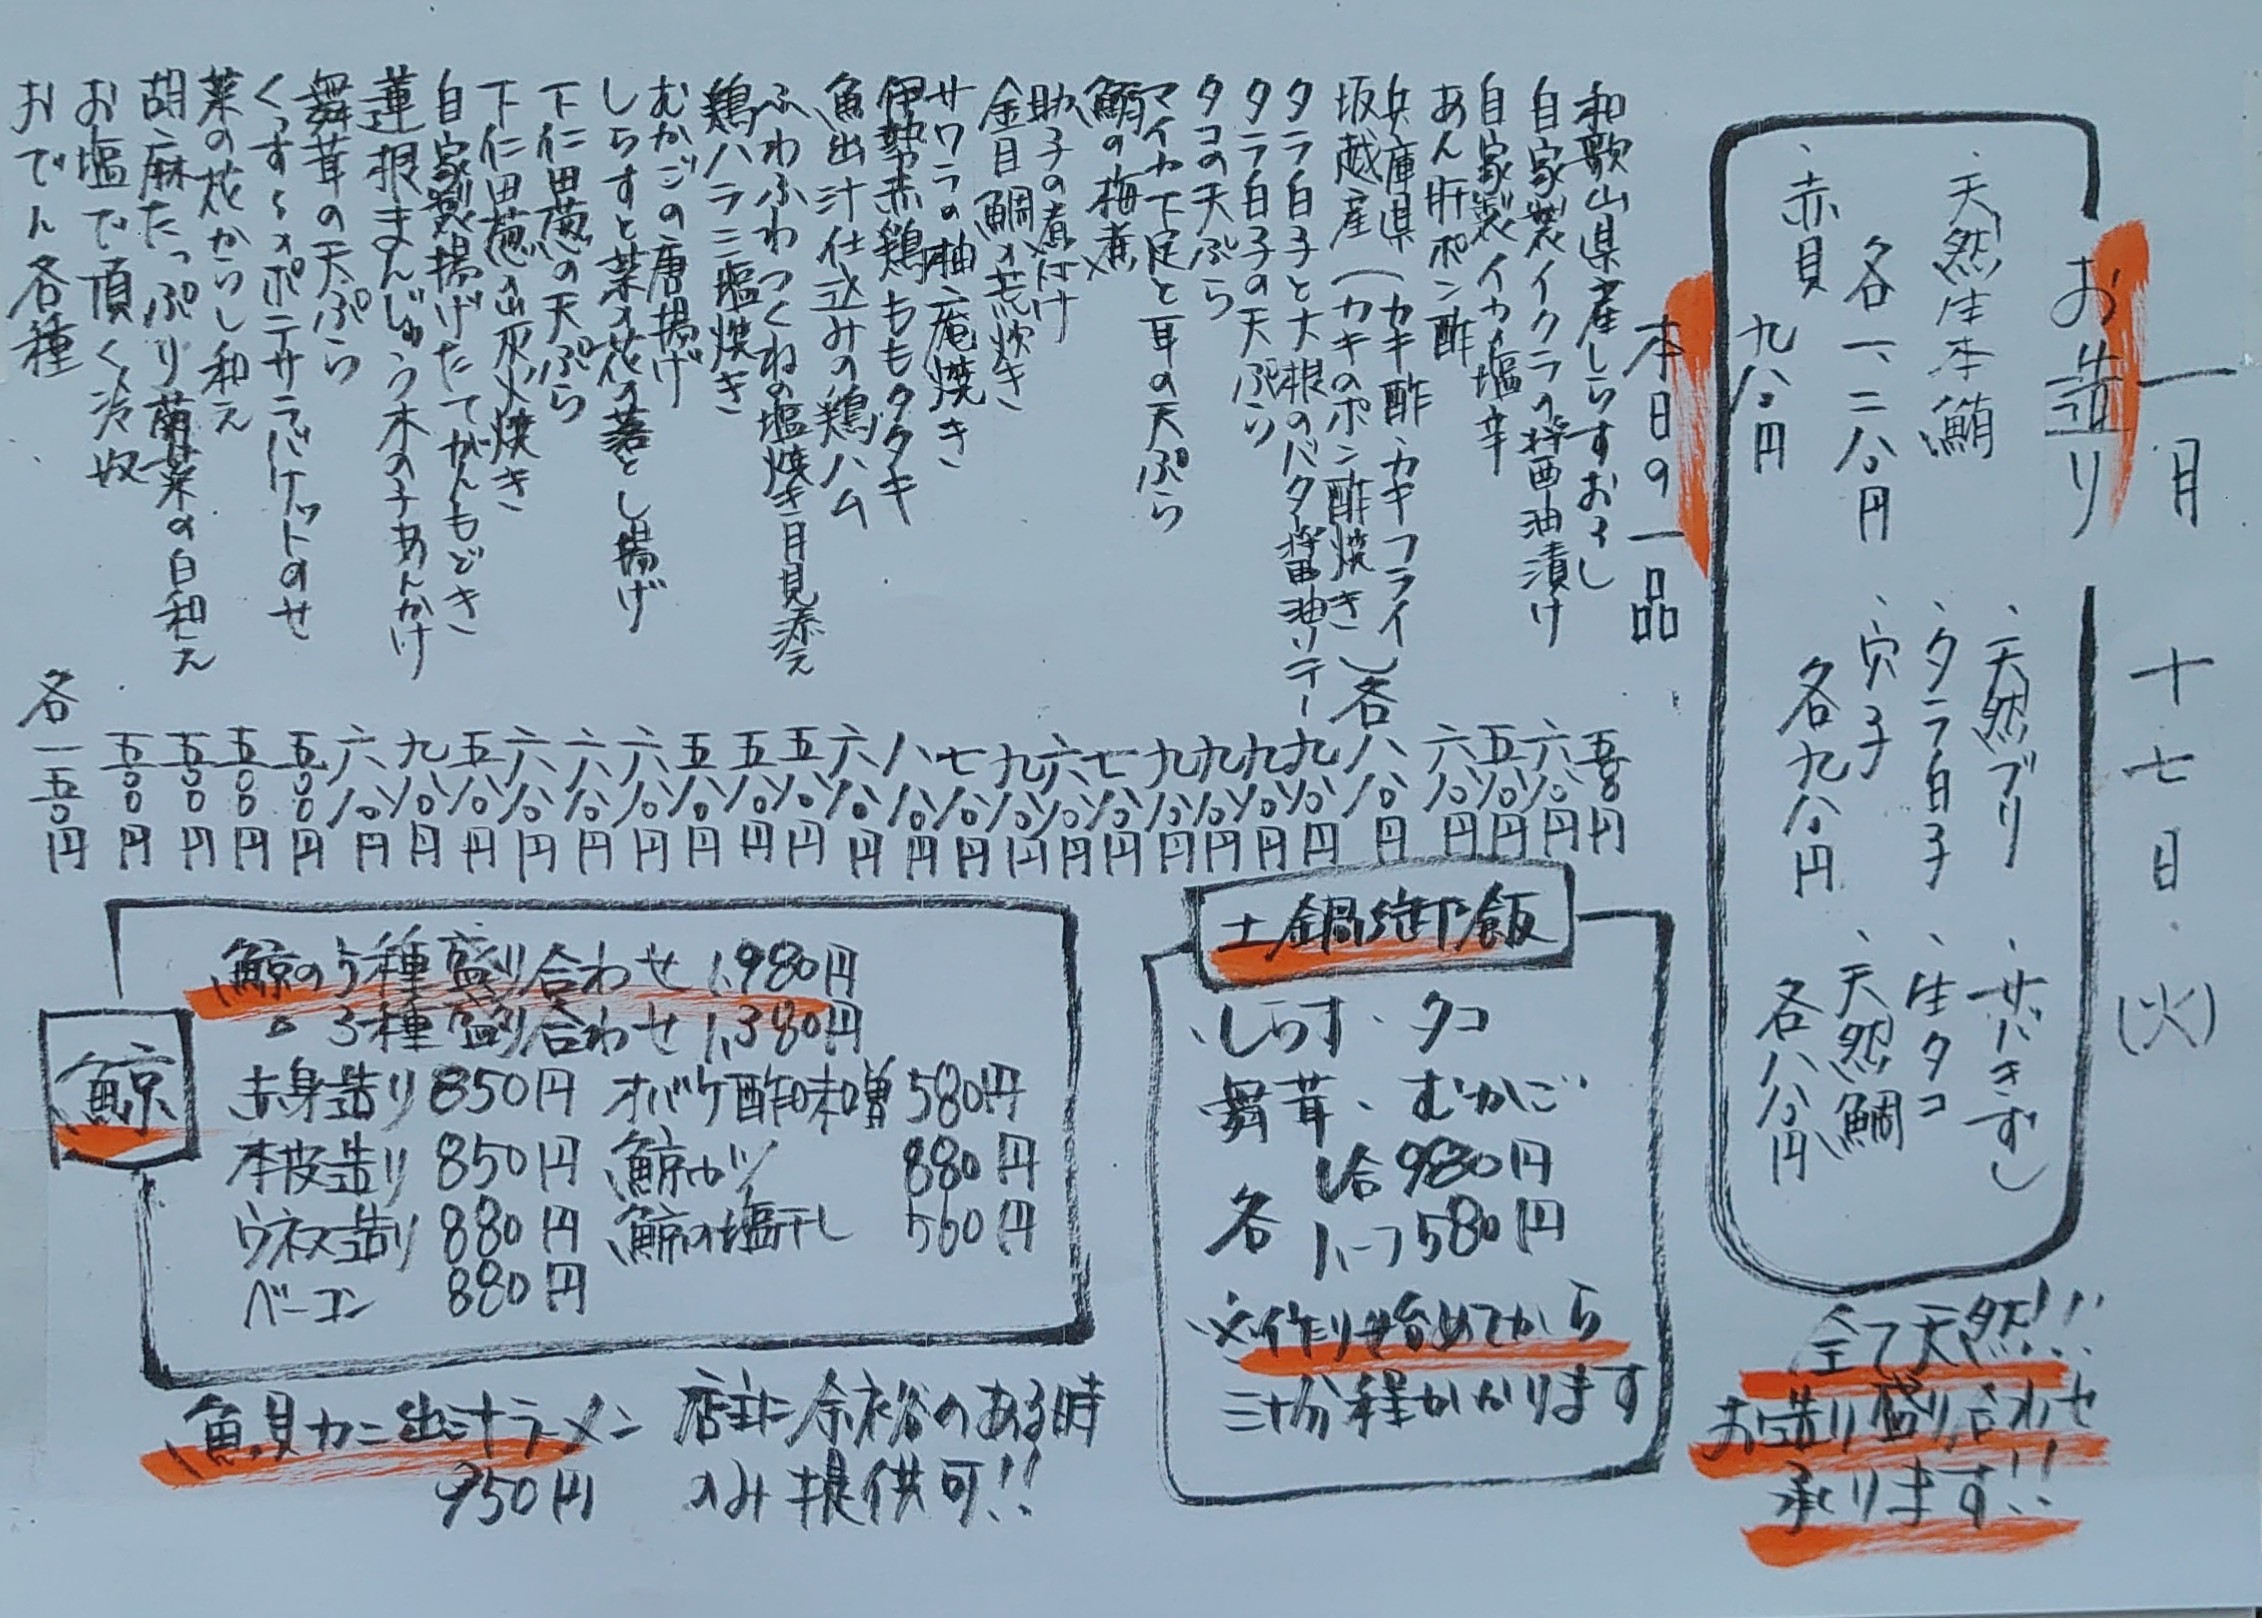 一月十七日(火)
お造り
、天然ブリ
、きずし
天然生本鮪
、タラ白子
、生タコ
各一、二八〇円
、穴子
、天然鯛
、赤貝
各九八〇円
各八八〇円
九八〇円
全て天然!!
お造り盛り合わせ
承ります!!
本日の一品
和歌山県産しらすおろし 五〇〇円
自家製イクラの醤油漬け 六八〇円
自家製イカの塩辛 五八〇円
あん肝ポン酢 六八〇円
兵庫県(カキ酢・カキフライ)
坂越産(カキのポン酢焼き)各八八〇円
タラ白子と大根のバター醤油ソテー 九八〇円
タラ白子の天ぷら 九八〇円
タコの天ぷら 九八〇円
マイカ下足と耳の天ぷら 九八〇円
鰯の梅煮 七八〇円
助子の煮付け 六八〇円
金目鯛の荒炊き 九八〇円
サワラの柚庵焼き 七八〇円
伊勢赤鶏ももタタキ 八八〇円
魚出汁仕込みの鶏ハム 六八〇円
ふわふわつくねの塩焼き月見添え 五八〇円
鶏ハラミ塩焼き 五八〇円
むかごの唐揚げ 五八〇円
しらすと菜の花の落とし揚げ 六八〇円
下仁田葱の天ぷら 六八〇円
下仁田葱の山灰火焼き 六八〇円
自家製揚げたてがんもどき 五八〇円
蓮根まんじゅう木の子あんかけ 九八〇円
舞茸の天ぷら 六八〇円
くっすんポテサラバケットのせ 五〇〇円
菜の花からし和え 五〇〇円
胡麻たっぷり菊菜の白和え 五〇〇円
お塩で頂く冷奴 五〇〇円
おでん各種 各一五〇円
土鍋御飯
、しらす、タコ
舞茸、むかご
各 1合 980円
1/2 580円
※作り始めてから
三十分程かかります
鯨
鯨の5種盛り合わせ 1,980円
〃 3種盛り合わせ 1,380円
赤身造り 850円 オバケ酢味噌 580円
本皮造り 850円 鯨カツ 880円
ウネス造り 880円 鯨の塩干し 560円
ベーコン 880円
魚貝カニ出汁ラーメン 店主に余裕のある時
950円 のみ提供可!!